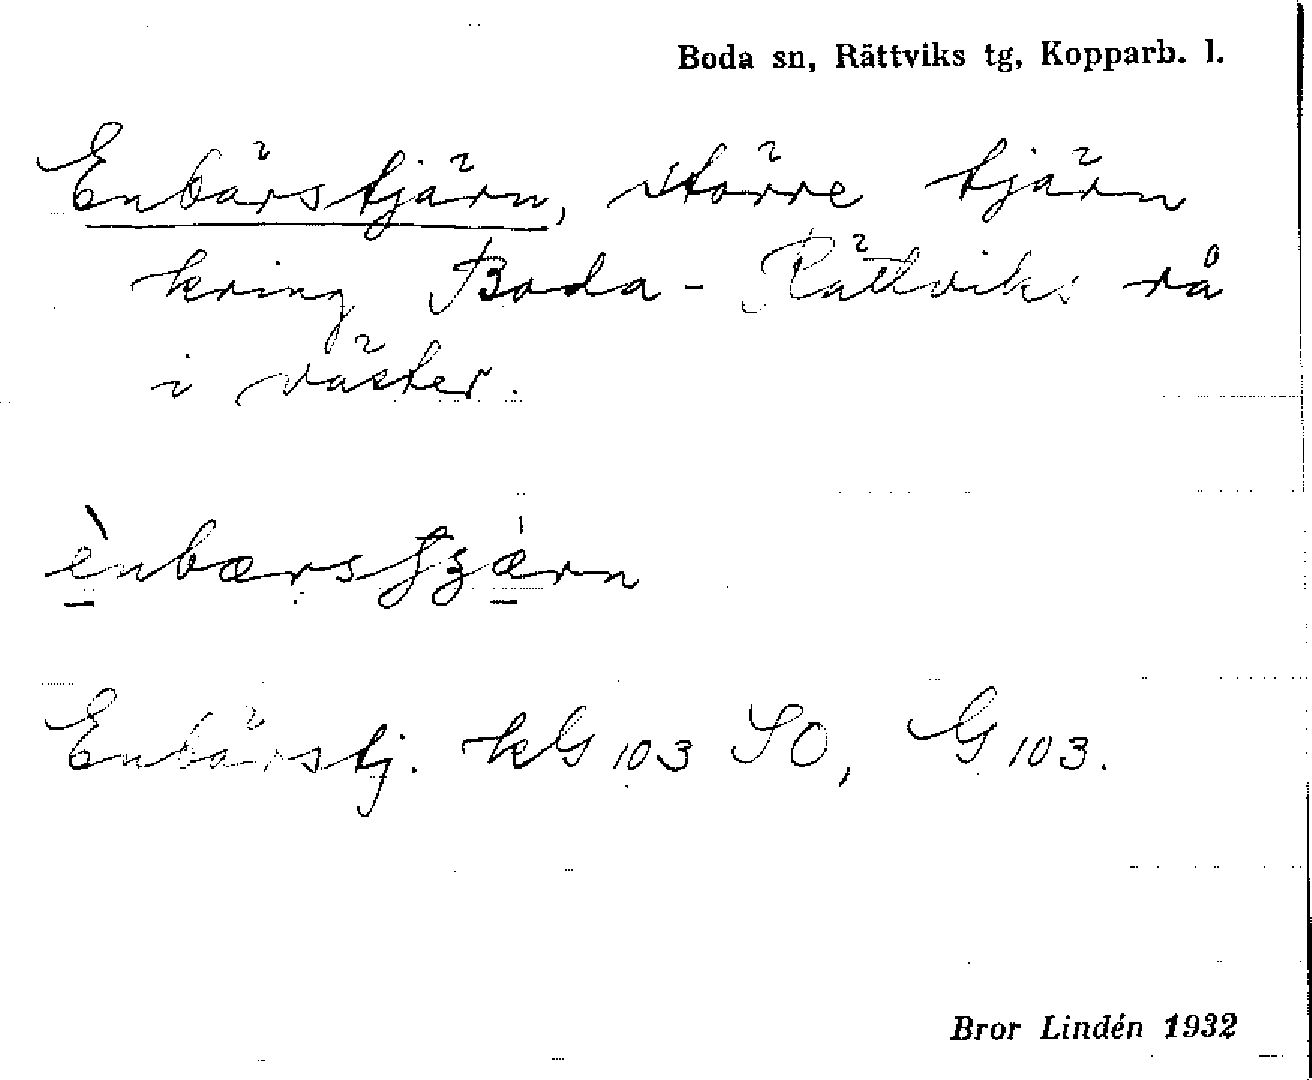 Boda sn, Rättviks tg, Kopparb. l.
Enbärstjärn, större tjärn
kring Boda - Rättviks rå
i väster.
ènbærstʒǽrn
Enbärstj. kG 103 SO, G 103.
Bror Lindén 1932